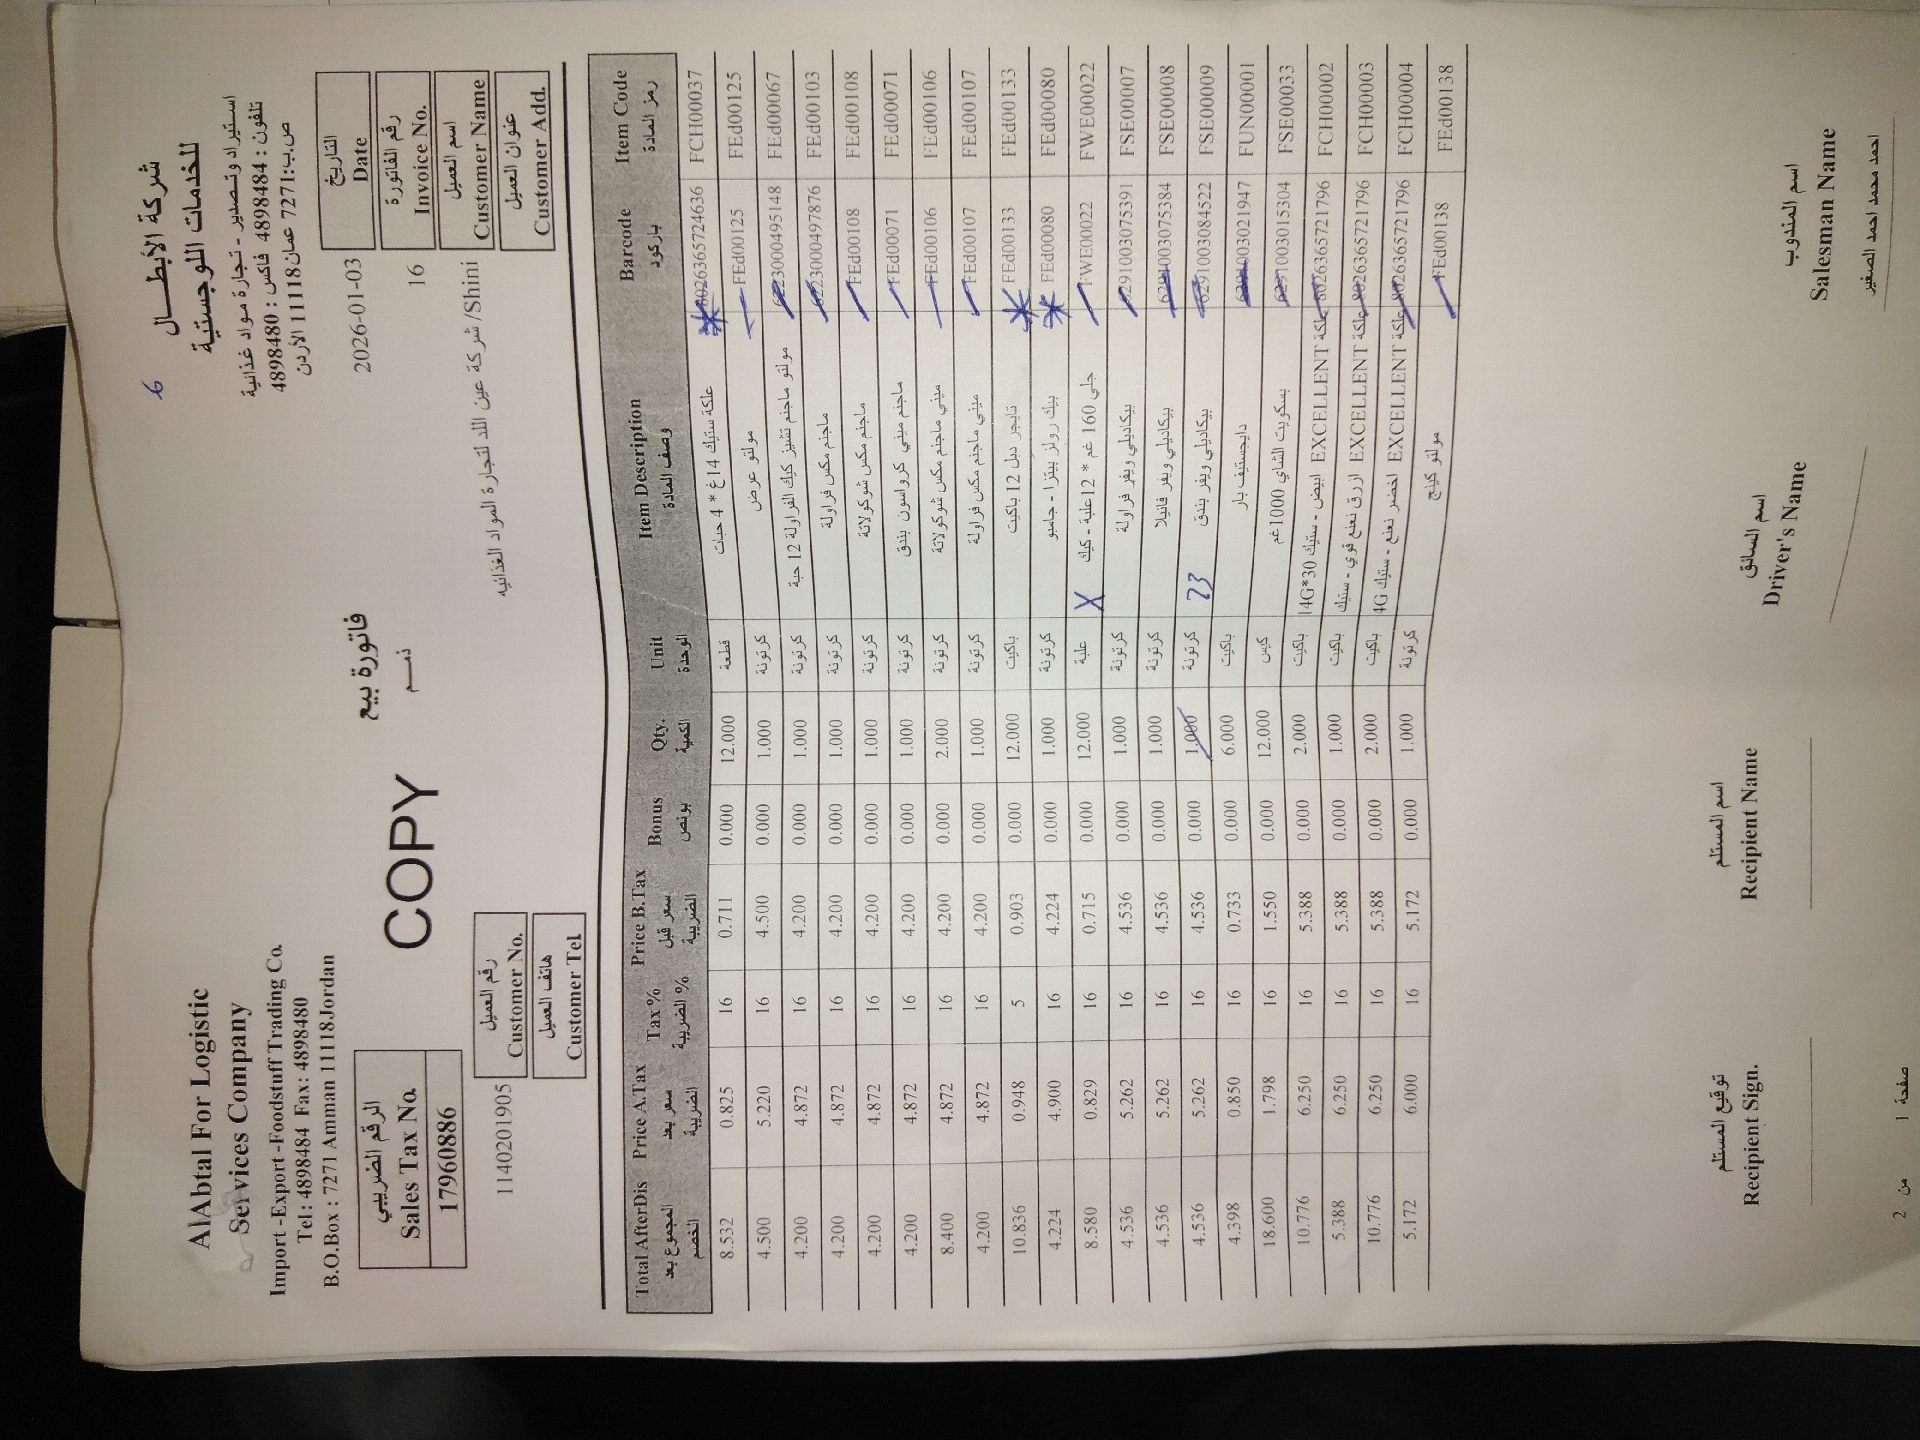 AlAbtal For Logistic
Services Company
Import -Export -Foodstuff Trading Co.
Tel: 4898484 Fax: 4898480
B.O.Box : 7271 Amman 11118Jordan
6
شركة الأبطـــــال
للخدمات اللوجستية
استيراد وتصدير - تجارة مواد غذائية
تلفون : 4898484 فاكس : 4898480
ص.ب:7271 عمان11118 الأردن
الرقم الضريبي
Sales Tax No.
17960886
COPY
فاتورة بيع
ذمـــم
2026-01-03 التاريخ Date
16 رقم الفاتورة Invoice No.
شركة عين اللد لتجارة المواد الغذائيه /Shini اسم العميل Customer Name
عنوان العميل Customer Add.
1140201905 رقم العميل Customer No.
هاتف العميل Customer Tel.
Total AfterDis Price A.Tax Tax% Price B.Tax Bonus Qty. Unit Item Description Barcode Item Code
المجموع بعد الخصم سعر بعد الضريبة الضريبة % سعر قبل الضريبة بونص الكمية الوحدة وصف المادة باركود رمز المادة
8.532 0.825 16 0.711 0.000 12.000 قطعة علكة ستيك 14غ * 4 حبات 8026365724636 FCH00037
4.500 5.220 16 4.500 0.000 1.000 كرتونة مولتو عرض FEd00125 FEd00125
4.200 4.872 16 4.200 0.000 1.000 كرتونة مولتو ماجنم تشيز كيك الفراولة 12 حبة 6223000495148 FEd00067
4.200 4.872 16 4.200 0.000 1.000 كرتونة ماجنم مكس فراولة 6223000497876 FEd00103
4.200 4.872 16 4.200 0.000 1.000 كرتونة ماجنم مكس شوكولاتة FEd00108 FEd00108
4.200 4.872 16 4.200 0.000 1.000 كرتونة ماجنم ميني كرواسون بندق FEd00071 FEd00071
8.400 4.872 16 4.200 0.000 2.000 كرتونة ميني ماجنم مكس شوكولاتة FEd00106 FEd00106
4.200 4.872 16 4.200 0.000 1.000 كرتونة ميني ماجنم مكس فراولة FEd00107 FEd00107
10.836 0.948 5 0.903 0.000 12.000 باكيت تايجر دبل 12 باكيت FEd00133 FEd00133
4.224 4.900 16 4.224 0.000 1.000 كرتونة بيك رولز بيتزا - جامبو FEd00080 FEd00080
8.580 0.829 16 0.715 0.000 12.000 علبة X جلي 160 غم * 12علبة - كيك FWE00022 FWE00022
4.536 5.262 16 4.536 0.000 1.000 كرتونة بيكاديلي ويفر فراولة 6291003075391 FSE00007
4.536 5.262 16 4.536 0.000 1.000 كرتونة بيكاديلي ويفر فانيلا 6291003075384 FSE00008
4.536 5.262 16 4.536 0.000 1.000 كرتونة 23 بيكاديلي ويفر بندق 6291003084522 FSE00009
4.398 0.850 16 0.733 0.000 6.000 باكيت دايجستيف بار 6291003021947 FUN00001
18.600 1.798 16 1.550 0.000 12.000 كيس بسكويت الشاي 1000غم 6291003015304 FSE00033
10.776 6.250 16 5.388 0.000 2.000 باكيت علكة EXCELLENT ابيض - ستيك 14G*30 8026365721796 FCH00002
5.388 6.250 16 5.388 0.000 1.000 باكيت علكة EXCELLENT ازرق نعنع قوي - ستيك 8026365721796 FCH00003
10.776 6.250 16 5.388 0.000 2.000 باكيت علكة EXCELLENT اخضر نعنع - ستيك 4G 8026365721796 FCH00004
5.172 6.000 16 5.172 0.000 1.000 كرتونة مولتو كينج FEd00138 FEd00138
توقيع المستلم اسم المستلم اسم السائق اسم المندوب
Recipient Sign. Recipient Name Driver's Name Salesman Name
احمد محمد احمد الصغير
صفحة 1 من 2